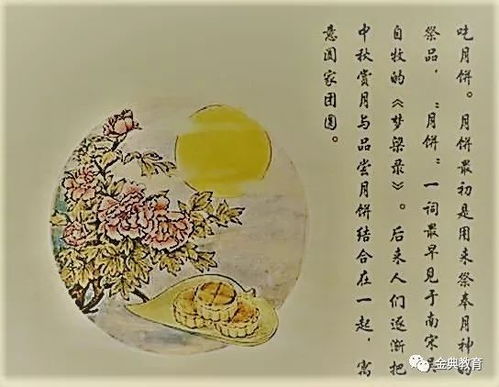 吃月饼。月饼最初是用来祭奉月神的
祭品，“月饼”一词最早见于南宋吴
自牧的《梦梁录》。后来人们逐渐把
中秋赏月与品尝月饼结合在一起，寓
意圆家团圆。
金典教育